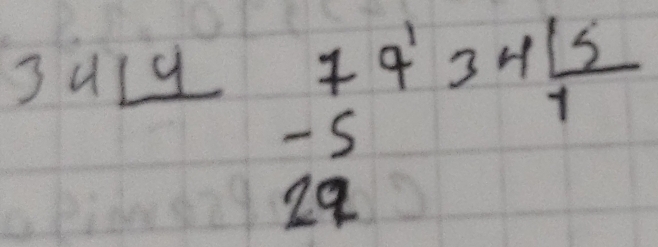 34 | 4 79'34 | 5
-5 1
29